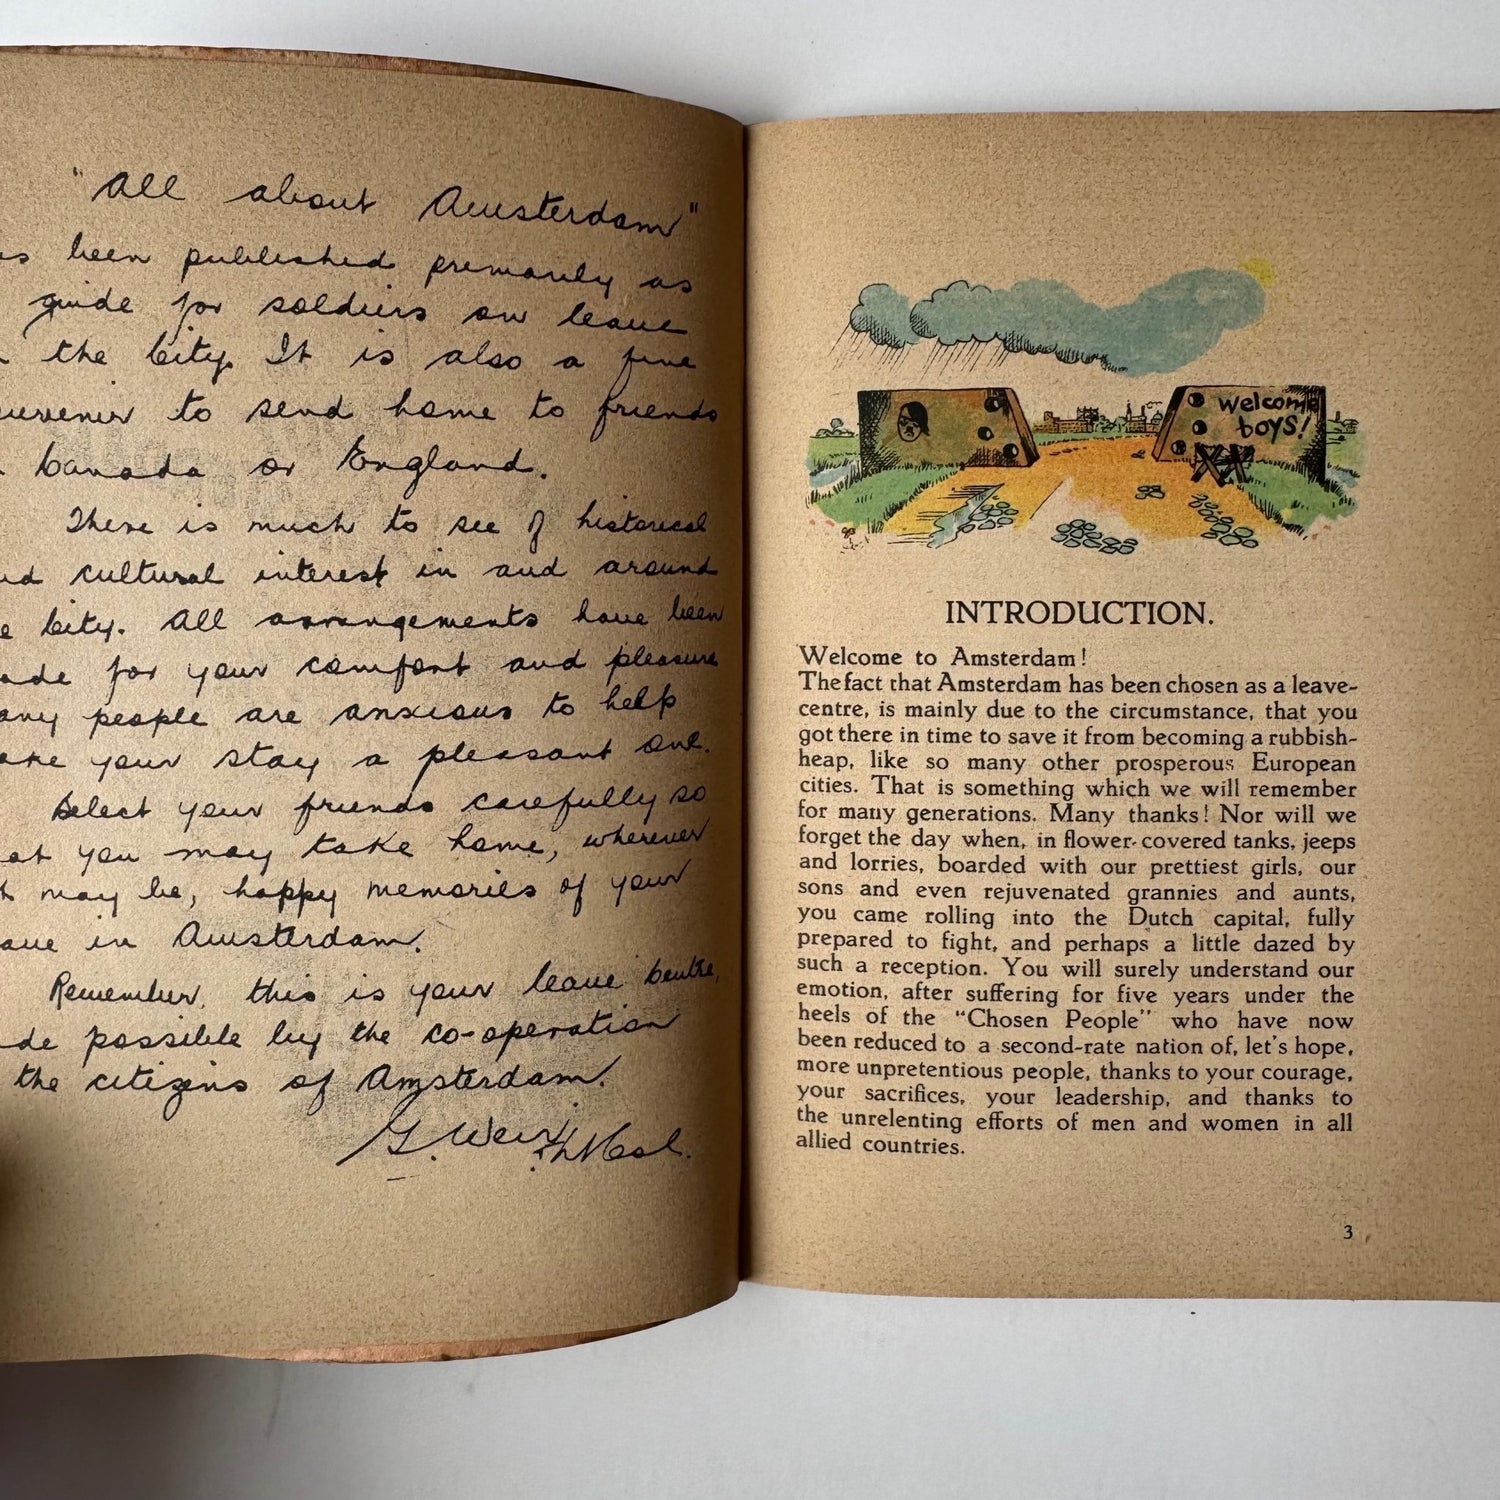 "All about Amsterdam"
been published primarily as
guide for soldiers on leave
the City. It is also a fine
to send home to friends
Canada or England.
There is much to see of historical
cultural interest in and around
City. All arrangements have been
for your comfort and pleasure
people are anxious to help
your stay a pleasant one.
Select your friends carefully so
you may take home, wherever
may be, happy memories of your
in Amsterdam.
Remember, this is your leave Centre,
possible by the co-operation
the citizens of Amsterdam.
G. Weir
Welcome
boys!
INTRODUCTION.
Welcome to Amsterdam!
The fact that Amsterdam has been chosen as a leave-
centre, is mainly due to the circumstance, that you
got there in time to save it from becoming a rubbish-
heap, like so many other prosperous European
cities. That is something which we will remember
for many generations. Many thanks! Nor will we
forget the day when, in flower-covered tanks, jeeps
and lorries, boarded with our prettiest girls, our
sons and even rejuvenated grannies and aunts,
you came rolling into the Dutch capital, fully
prepared to fight, and perhaps a little dazed by
such a reception. You will surely understand our
emotion, after suffering for five years under the
heels of the "Chosen People" who have now
been reduced to a second-rate nation of, let's hope,
more unpretentious people, thanks to your courage,
your sacrifices, your leadership, and thanks to
the unrelenting efforts of men and women in all
allied countries.
3